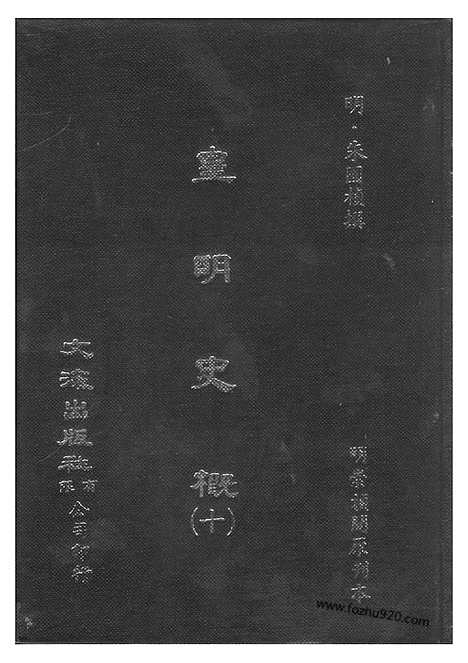 明・朱國楨撰
明崇禎間原刊本
皇明史概(十)
文海出版社有限公司印行
www.fozhu920.com